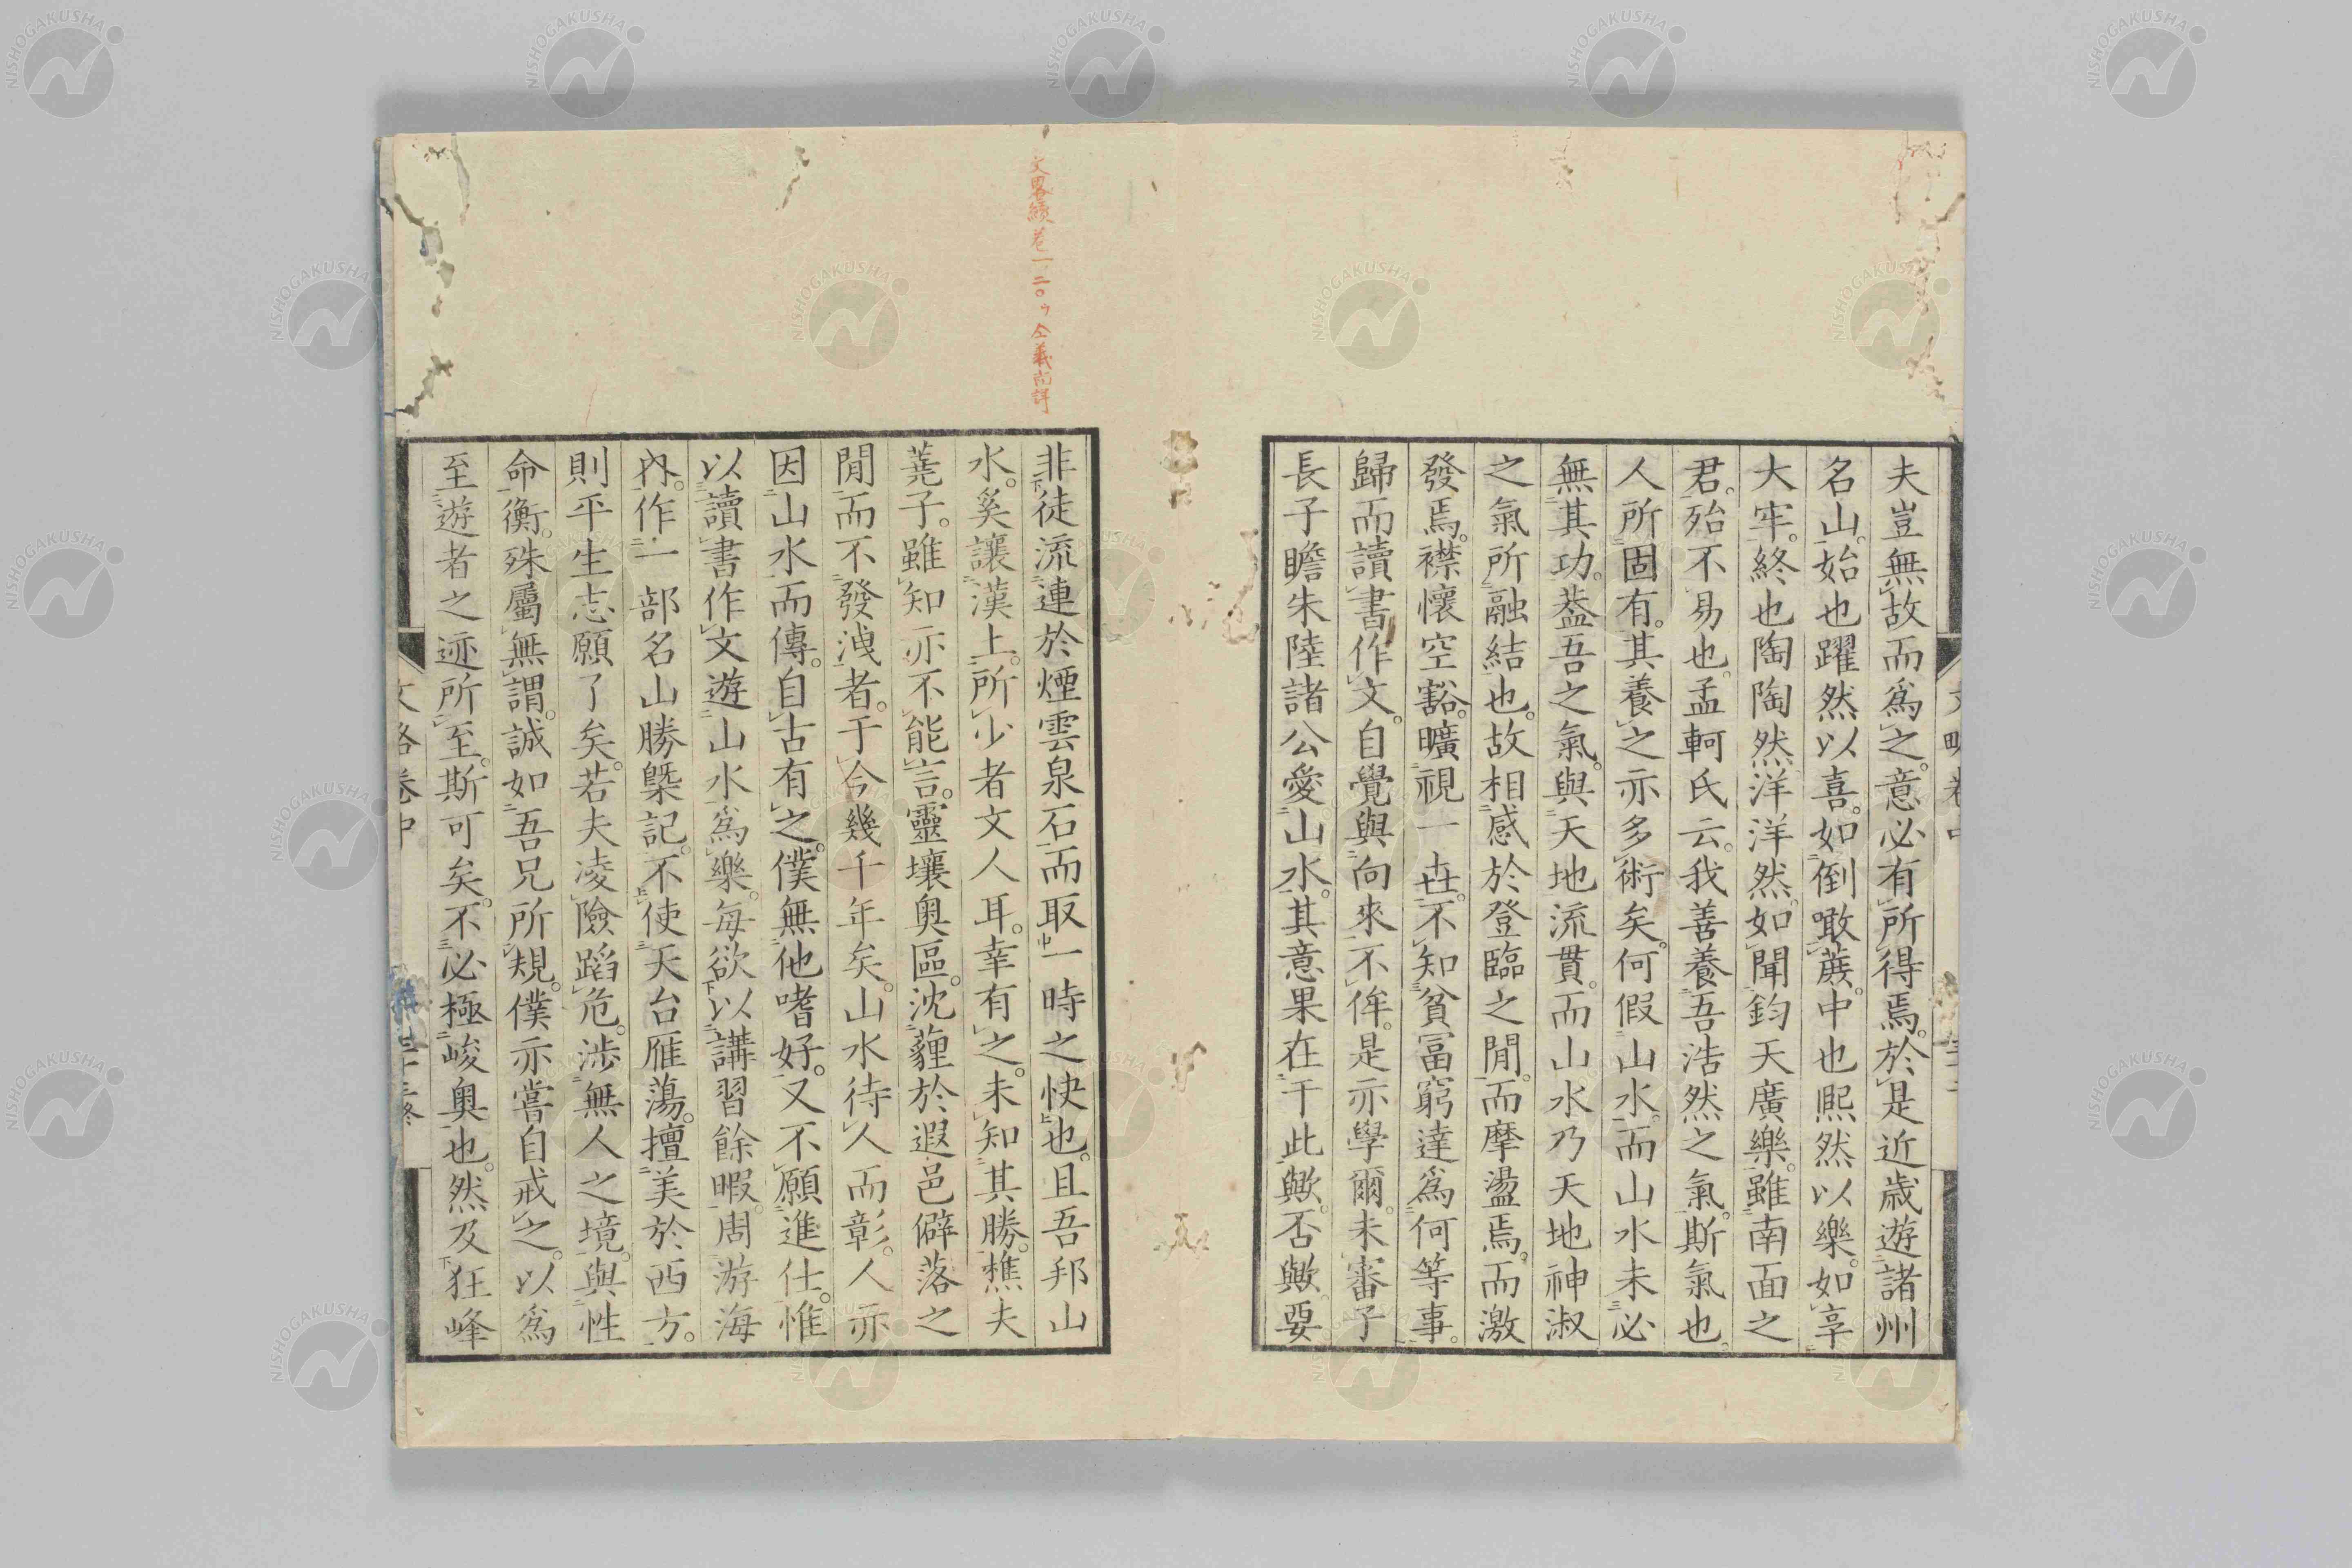 夫豈無故而爲之。意必有所得焉。於是近歳遊諸州
名山。始也躍然以喜。如倒噉蔗。中也熈然以樂。如享
大牢。終也陶陶然洋洋然。如聞鈞天廣樂。雖南面之
君。殆不易也。孟軻氏云。我善養吾浩然之氣。斯氣也。
人所固有。其養之亦多術矣。何假山水。而山水未必
無其功。葢吾之氣。與天地流貫。而山水乃天地神淑
之氣所融結也。故相感於登臨之閒。而摩盪焉。而激
發焉。襟懷空豁。曠視一丗。不知貧富窮達爲何等事。
歸而讀書作文。自覺與向來不侔。是亦學爾。未審子
長子瞻朱陸諸公愛山水。其意果在于此歟。否歟。要
非徒流連於煙雲泉石而取一時之快也。且吾邦山
水。奚讓漢上。所少者文人耳。幸有之。未知其勝。樵夫
蕘子。雖知亦不能言。靈壤奥區。沈薶於遐邑僻落之
閒。而不發洩者。于今幾千年矣。山水待人而彰。人亦
因山水而傳。自古有之。僕無他嗜好。又不願進仕。惟
以讀書作文遊山水爲樂。每欲以講習餘暇。周游海
内。作一部名山勝槩記。不使天台雁蕩。擅美於西方。
則平生志願了矣。若夫凌險蹈危。渉無人之境。與性
命衡。殊屬無謂。誠如吾兄所規。僕亦嘗自戒之。以爲
至遊者之迹所至。斯可矣。不必極峻奥也。然及狂峰
文畧續卷一 二〇ウ 仝義尚詳
文略卷中
NISHOGAKUSHA